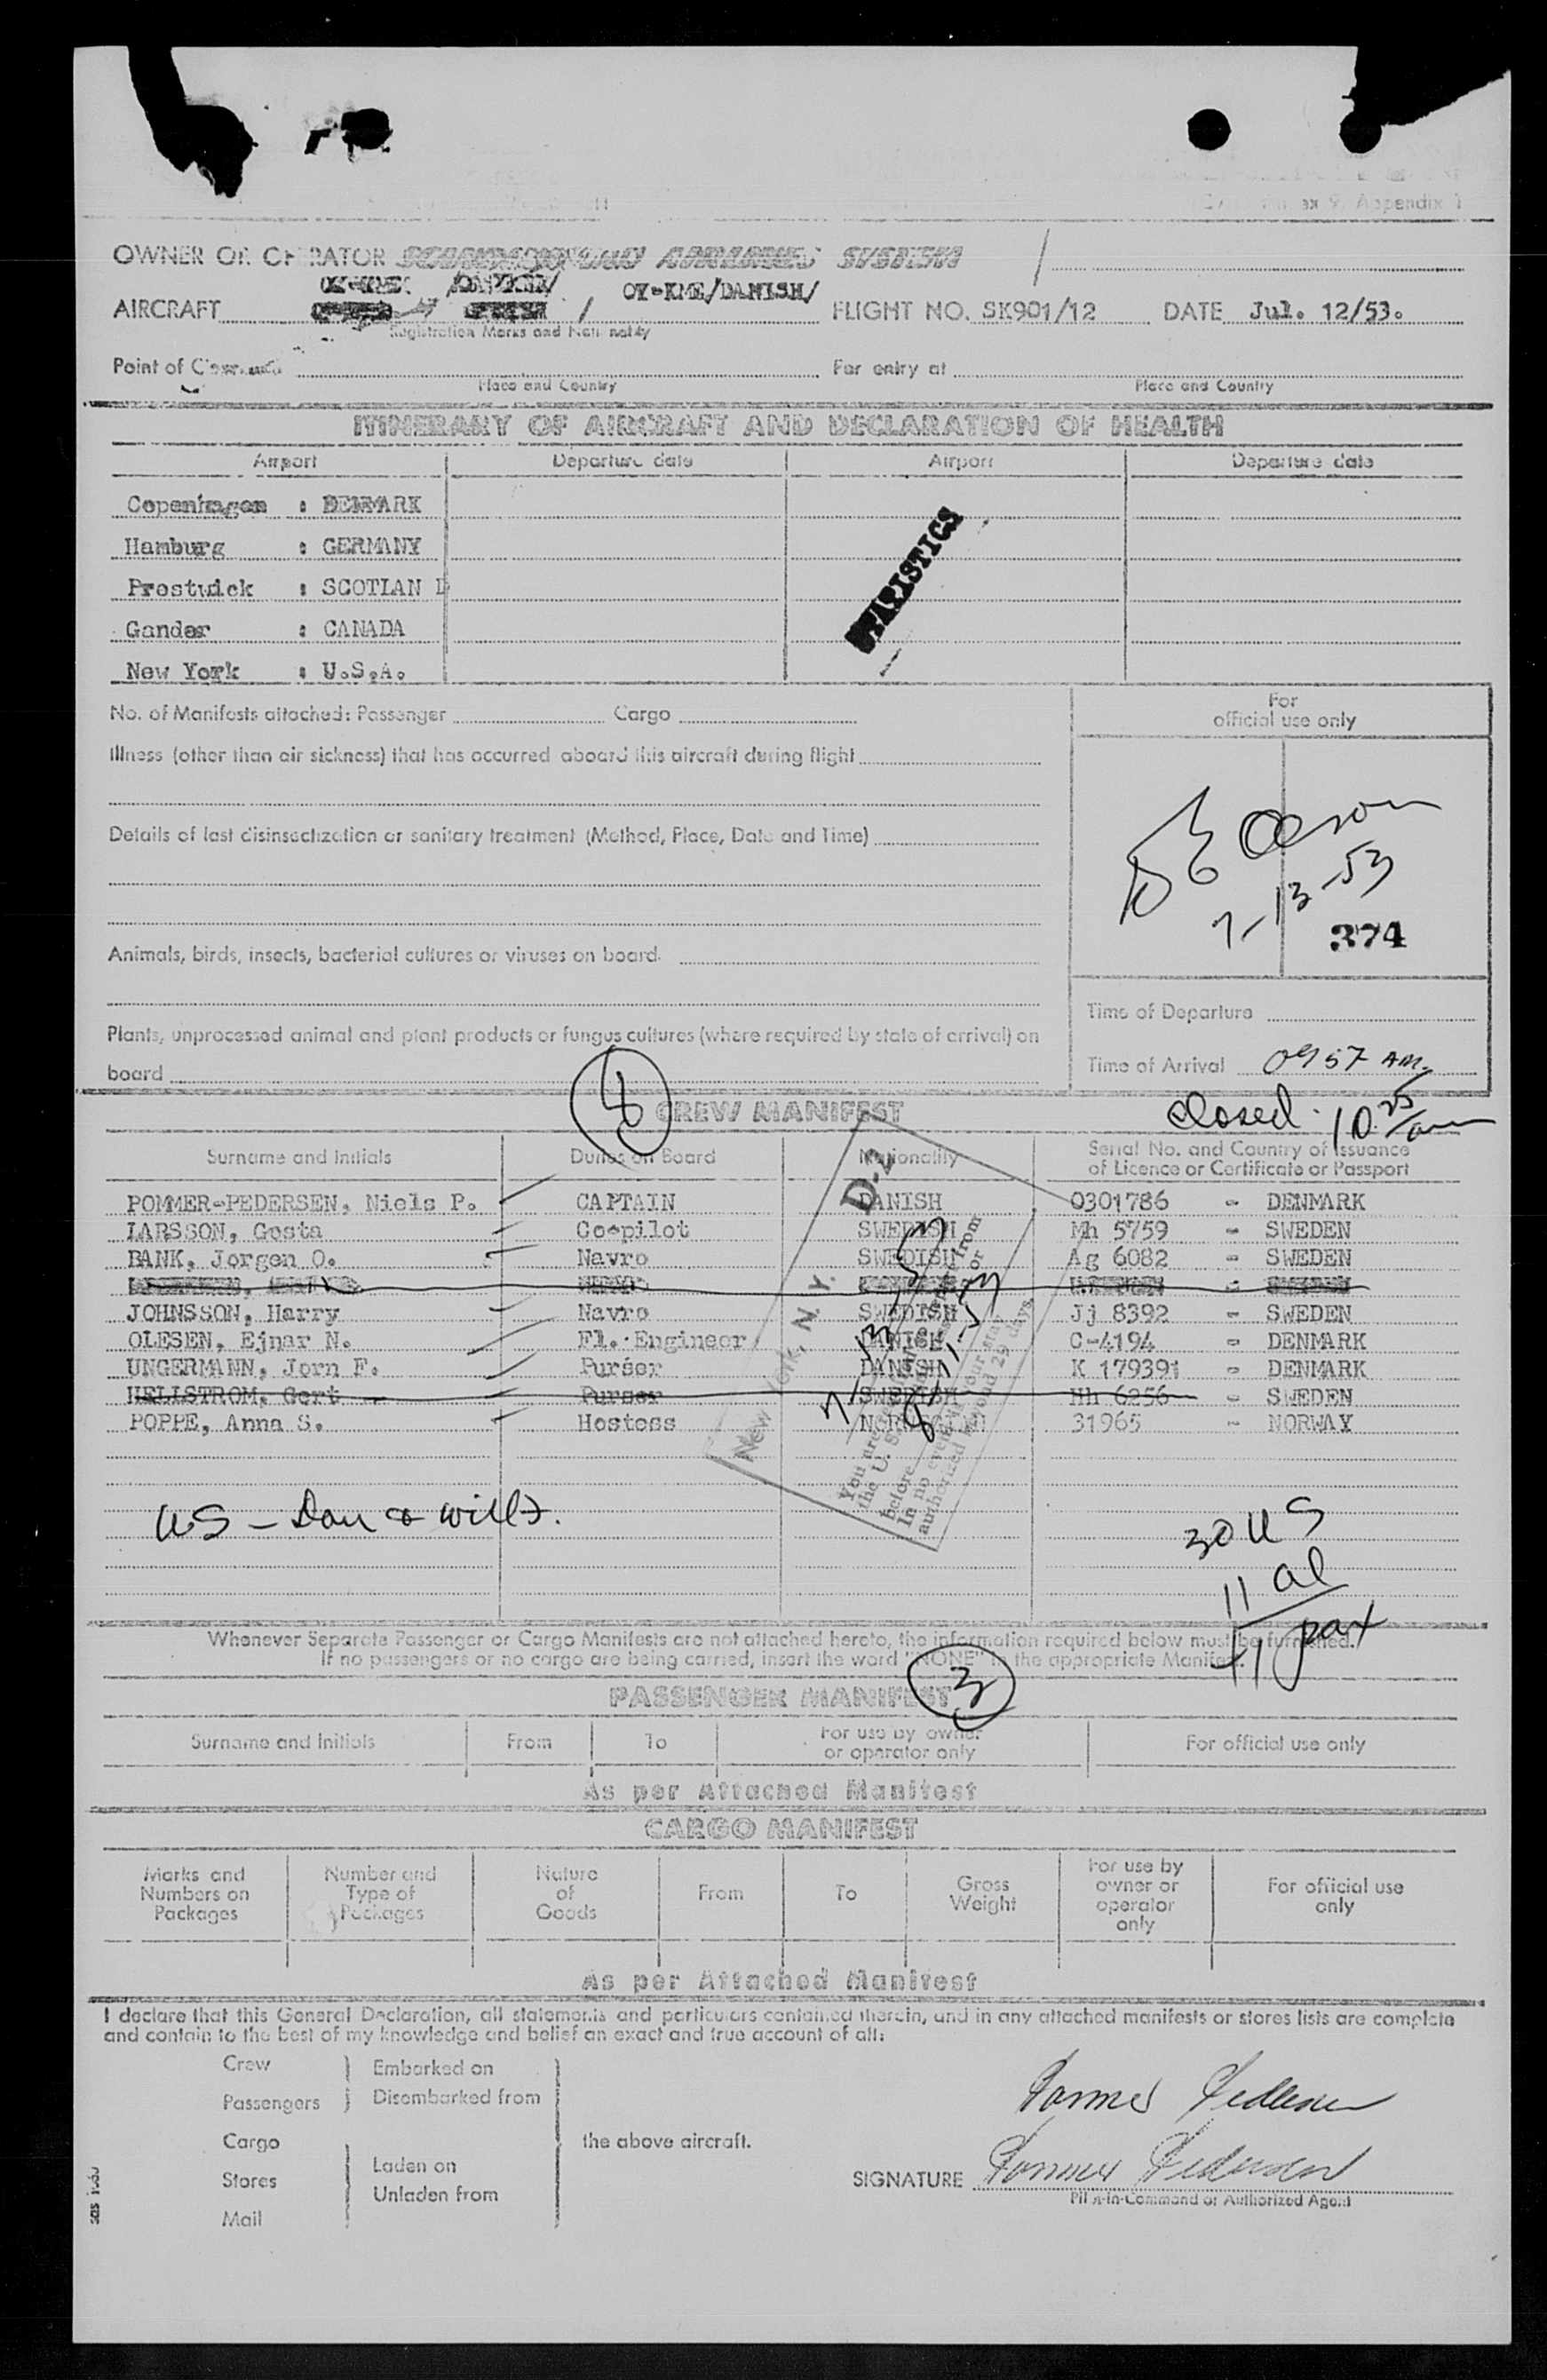 ex 9, Appendix 1
OWNER OR OPERATOR SCANDINAVIAN AIRLINES SYSTEM
AIRCRAFT OY-KME/DANISH/ FLIGHT NO. SK901/12 DATE Jul. 12/53.
Registration Marks and Nationality
Point of Clearance For entry at
Place and Country Place and Country
ITINERARY OF AIRCRAFT AND DECLARATION OF HEALTH
Airport Departure date Airport Departure date
Copenhagen : DENMARK
Hamburg : GERMANY
Prestwick : SCOTLAN D
Gander : CANADA
New York : U.S.A.
STATISTICS
No. of Manifests attached: Passenger Cargo
For
official use only
Illness (other than air sickness) that has occurred aboard this aircraft during flight
Details of last disinsectization or sanitary treatment (Method, Place, Date and Time)
Olson
7-13-53
374
Animals, birds, insects, bacterial cultures or viruses on board
Time of Departure
Plants, unprocessed animal and plant products or fungus cultures (where required by state of arrival) on
board
Time of Arrival 0957 AM.
closed 10 25 am
8
CREW MANIFEST
Surname and Initials Duties on Board Nationality Serial No. and Country of Issuance
of Licence or Certificate or Passport
POMMER-PEDERSEN, Niels P. CAPTAIN DANISH 0301786 - DENMARK
LARSSON, Gosta Co-pilot SWEDISH Mh 5759 - SWEDEN
BANK, Jorgen O. Navro SWEDISH Ag 6082 - SWEDEN
JOHNSSON, Harry Navro SWEDISH Jj 8392 - SWEDEN
OLESEN, Ejnar N. Fl. Engineer DANISH C-4194 - DENMARK
UNGERMANN, Jorn F. Purser DANISH K 179391 - DENMARK
HELLSTROM, Gert Purser SWEDISH Hh 6256 - SWEDEN
POPPE, Anna S. Hostess NORWEGIAN 31965 - NORWAX
New York, N.Y.
D-2
You are
the U. S. from
before or
In no event your stay
authorized beyond 29 days.
US - Dan & wills.
30 US
11 al
41 pax
Whenever Separate Passenger or Cargo Manifests are not attached hereto, the information required below must be furnished.
If no passengers or no cargo are being carried, insert the word "NONE" in the appropriate Manifest.
3
PASSENGER MANIFEST
Surname and Initials From To For use by owner
or operator only For official use only
As per Attached Manifest
CARGO MANIFEST
Marks and
Numbers on
Packages Number and
Type of
Packages Nature
of
Goods From To Gross
Weight For use by
owner or
operator
only For official use
only
As per Attached Manifest
I declare that this General Declaration, all statements and particulars contained therein, and in any attached manifests or stores lists are complete
and contain to the best of my knowledge and belief an exact and true account of all:
Crew Embarked on
Passengers Disembarked from
Cargo the above aircraft.
Stores Laden on
Mail Unladen from
Pommer Pedersen
SIGNATURE Pommer Pedersen
Pilot-in-Command or Authorized Agent